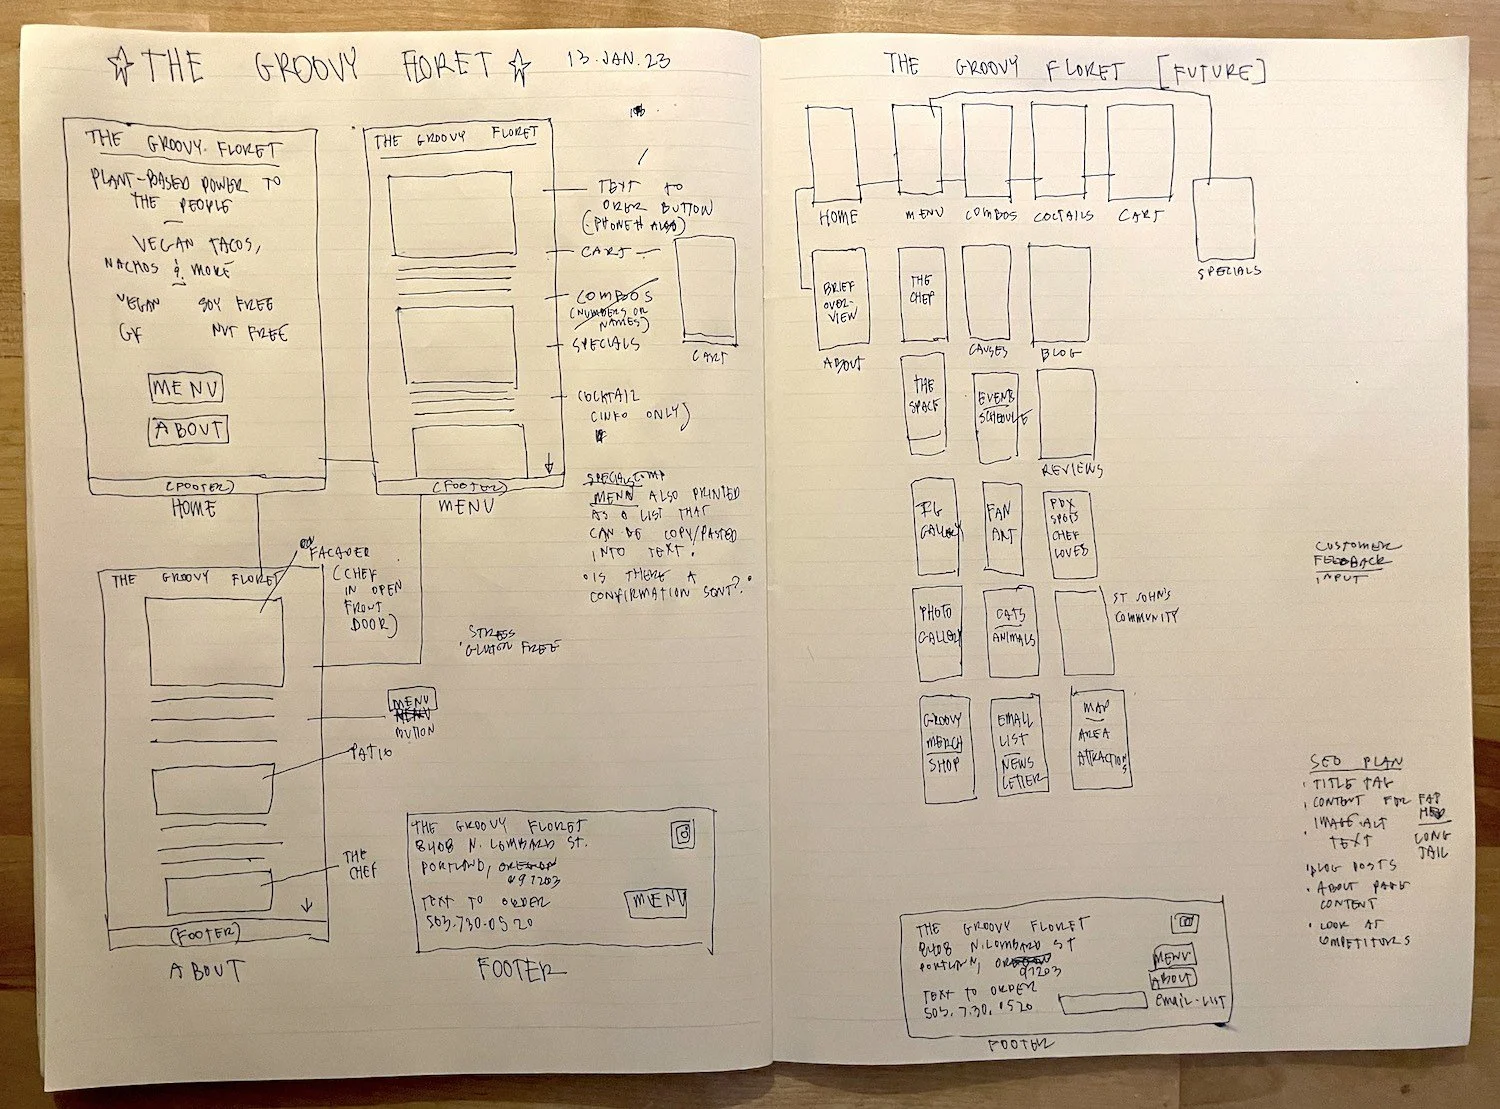 ☆ THE GROOVY FLORET ☆ 13.JAN.23
THE GROOVY FLORET
PLANT-BASED POWER TO
THE PEOPLE
VEGAN TACOS,
NACHOS & MORE
VEGAN SOY FREE
GF NUT FREE
MENU
ABOUT
(FOOTER)
HOME
THE GROOVY FLORET
(FOOTER)
MENU
TEXT TO
ORER BUTTON
(PHONE # ALSO)
CART
COMBOS
(NUMBERS OR
NAMES)
SPECIALS
COCKTAIL
(INFO ONLY)
CART
MENU ALSO PRINTED
AS A LIST THAT
CAN BE COPY/PASTED
INTO TEXT.
• IS THERE A
CONFIRMATION SENT?
THE GROOVY FLORET
(CHEF
IN OPEN
FRONT
DOOR)
STRESS
GLUTEN FREE
MENU
MENU
BUTTON
PATIO
THE
CHEF
(FOOTER)
ABOUT
THE GROOVY FLORET
8408 N. LOMBARD ST.
PORTLAND, OREGON
97203
TEXT TO ORDER
503.730.0520
MENU
FOOTER
THE GROOVY FLORET [FUTURE]
HOME
MENU
COMBOS
COCTAILS
CART
SPECIALS
BRIEF
OVER-
VIEW
ABOUT
THE
CHEF
CAUSES
BLOG
THE
SPACE
EVENTS
SCHEDULE
REVIEWS
IG
GALLERY
FAN
ART
PDX
SPOTS
CHEF
LOVES
PHOTO
GALLERY
CATS
ANIMALS
ST JOHN'S
COMMUNITY
GROOVY
MERCH
SHOP
EMAIL
LIST
NEWS
LETTER
MAP
AREA
ATTRACTIONS
CUSTOMER
FEEDBACK
INPUT
SEO PLAN
• TITLE TAG
• CONTENT FOR FAT
HEAD
• IMAGE ALT
TEXT
LONG
TAIL
• BLOG POSTS
• ABOUT PAGE
CONTENT
• LOOK AT
COMPETITORS
THE GROOVY FLORET
8408 N. LOMBARD ST
PORTLAN, OREGON
97203
TEXT TO ORDER
503.730.0520
MENU
ABOUT
EMAIL-LIST
FOOTER